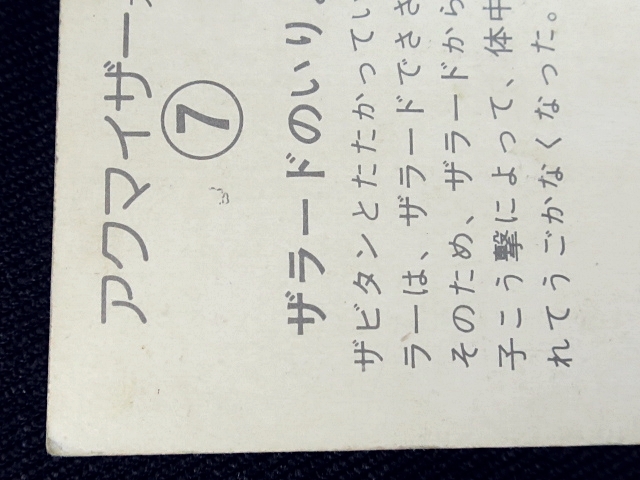 アクマイザー
7
ザラードのいり
ザビタンとたたかってい
ラーは、ザラードでささ
そのため、ザラードから
子こう撃によって、体中
れてうごかなくなった。